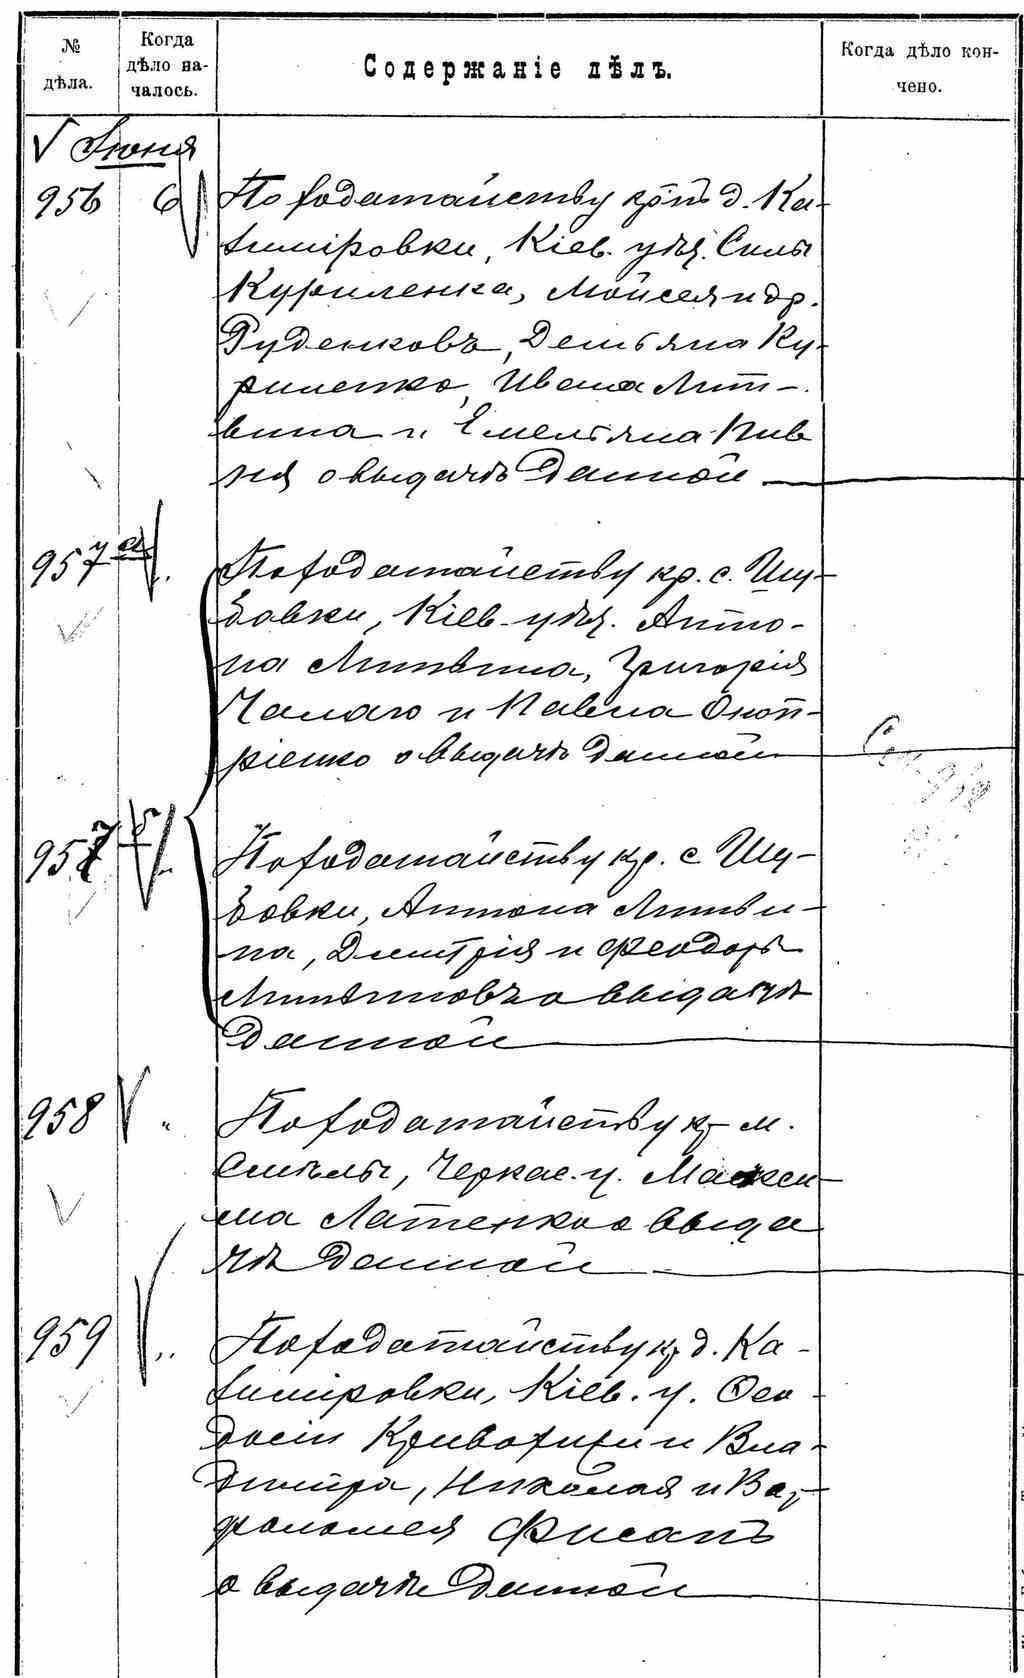 № дѣла.
Когда дѣло на-
чалось.
Содержаніе дѣлъ.
Когда дѣло кон-
чено.
Іюня
956 6 По ходатайству кр-нъ д. Ка-
зиміровки, Кіев. уѣз. Силы
Куриленка, Мойсея и др.
Руденковъ, Демьяна Ку-
риленко, Ивана Лит-
вина и Емельяна Пив
ня о выдачѣ данной
957 а По ходатайству кр. с. Шу-
бовки, Кіев. уѣз. Анто-
на Литвина, Григорія
Чалаго и Павла Оноп-
ріенко о выдачѣ данной
957 б По ходатайству кр. с Шу-
бовки, Антона Литви-
на, Дмитрія и Феодора
Литвиновъ о выдачѣ
данной
958 " По ходатайству кр м.
Смѣлы, Черкас. у. Макси-
ма Латенко о выда
чѣ данной
959 " По ходатайству кр д. Ка-
зиміровки, Кіев. у. Ѳео-
досіи и Вла-
диміра, Николая и Вар-
фоломея Фисанъ
о выдачѣ данной